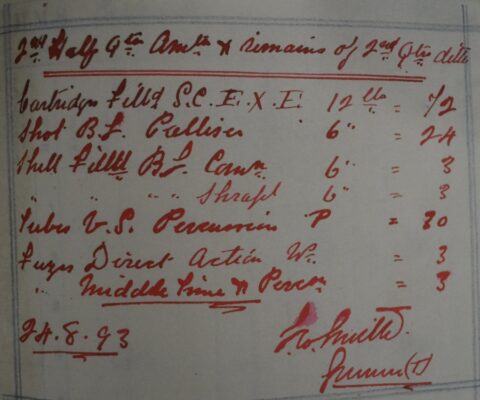 2nd Half Qtr Amtn & remains of 2nd Qtr ditto
Cartridges Filld S.C. E.X.E. 12 lb = 72
Shot B.L. Palliser 6" = 24
Shell Filled B.L. Comn 6" = 3
" " " " Shrapl 6" = 3
Tubes V.S. Percussion P = 30
Fuzes Direct Action W. = 3
" Middle Time & Percn = 3
24.8.93
Smith
Gunner(T)